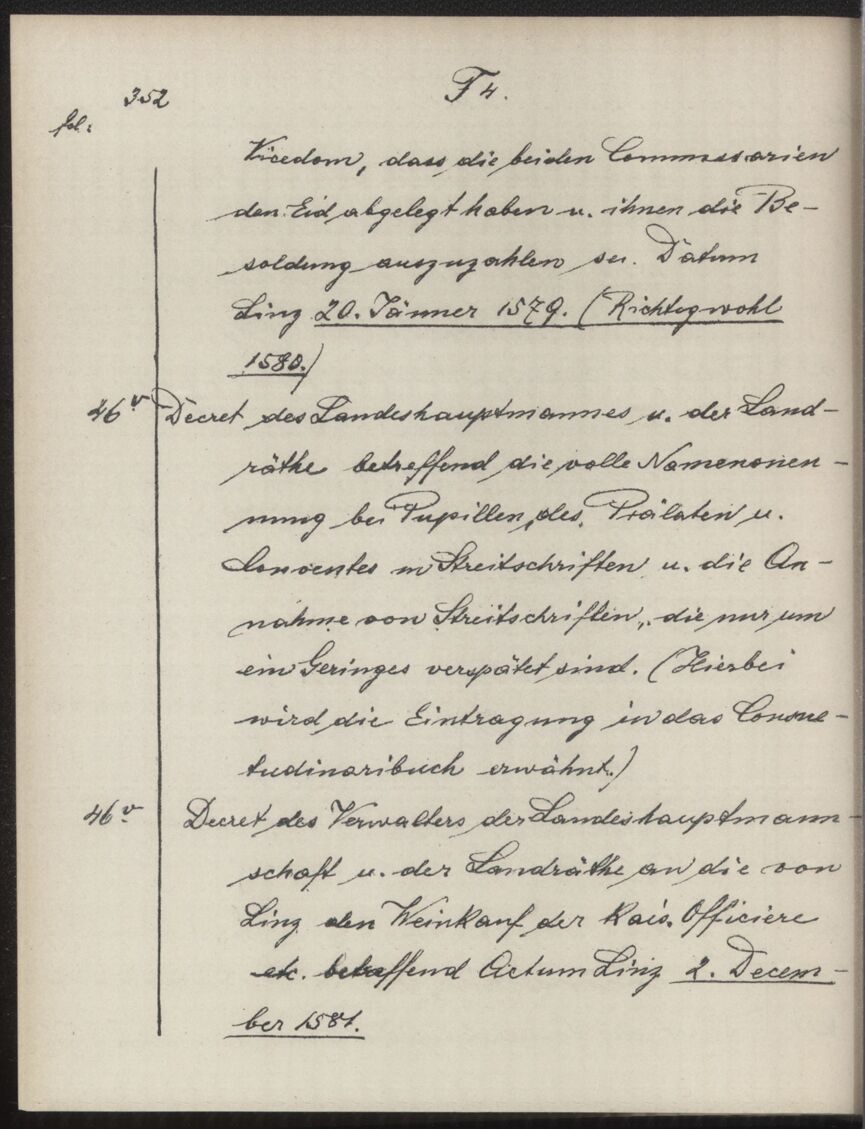 352
F 4.
fol:
Vicedom, dass die beiden Commissarien
den Eid abgelegt haben u. ihnen die Be-
soldung auszuzahlen sei. Datum
Linz 20. Jänner 1579. (Richtig wohl
1580.)
46v Decret des Landeshauptmannes u. der Land-
räthe betreffend die volle Namennen-
nung bei Pupillen, des Prälaten u.
Conventes in Streitschriften u. die An-
nahme von Streitschriften, die nur um
ein Geringes verspätet sind. (Hierbei
wird die Eintragung in das Consue-
tudinaribuch erwähnt.)
46v Decret des Verwalters der Landeshauptmann-
schaft u. der Landräthe an die von
Linz den Weinkauf der Kais. Officiere
etc. betreffend Actum Linz 2. Decem-
ber 1581.